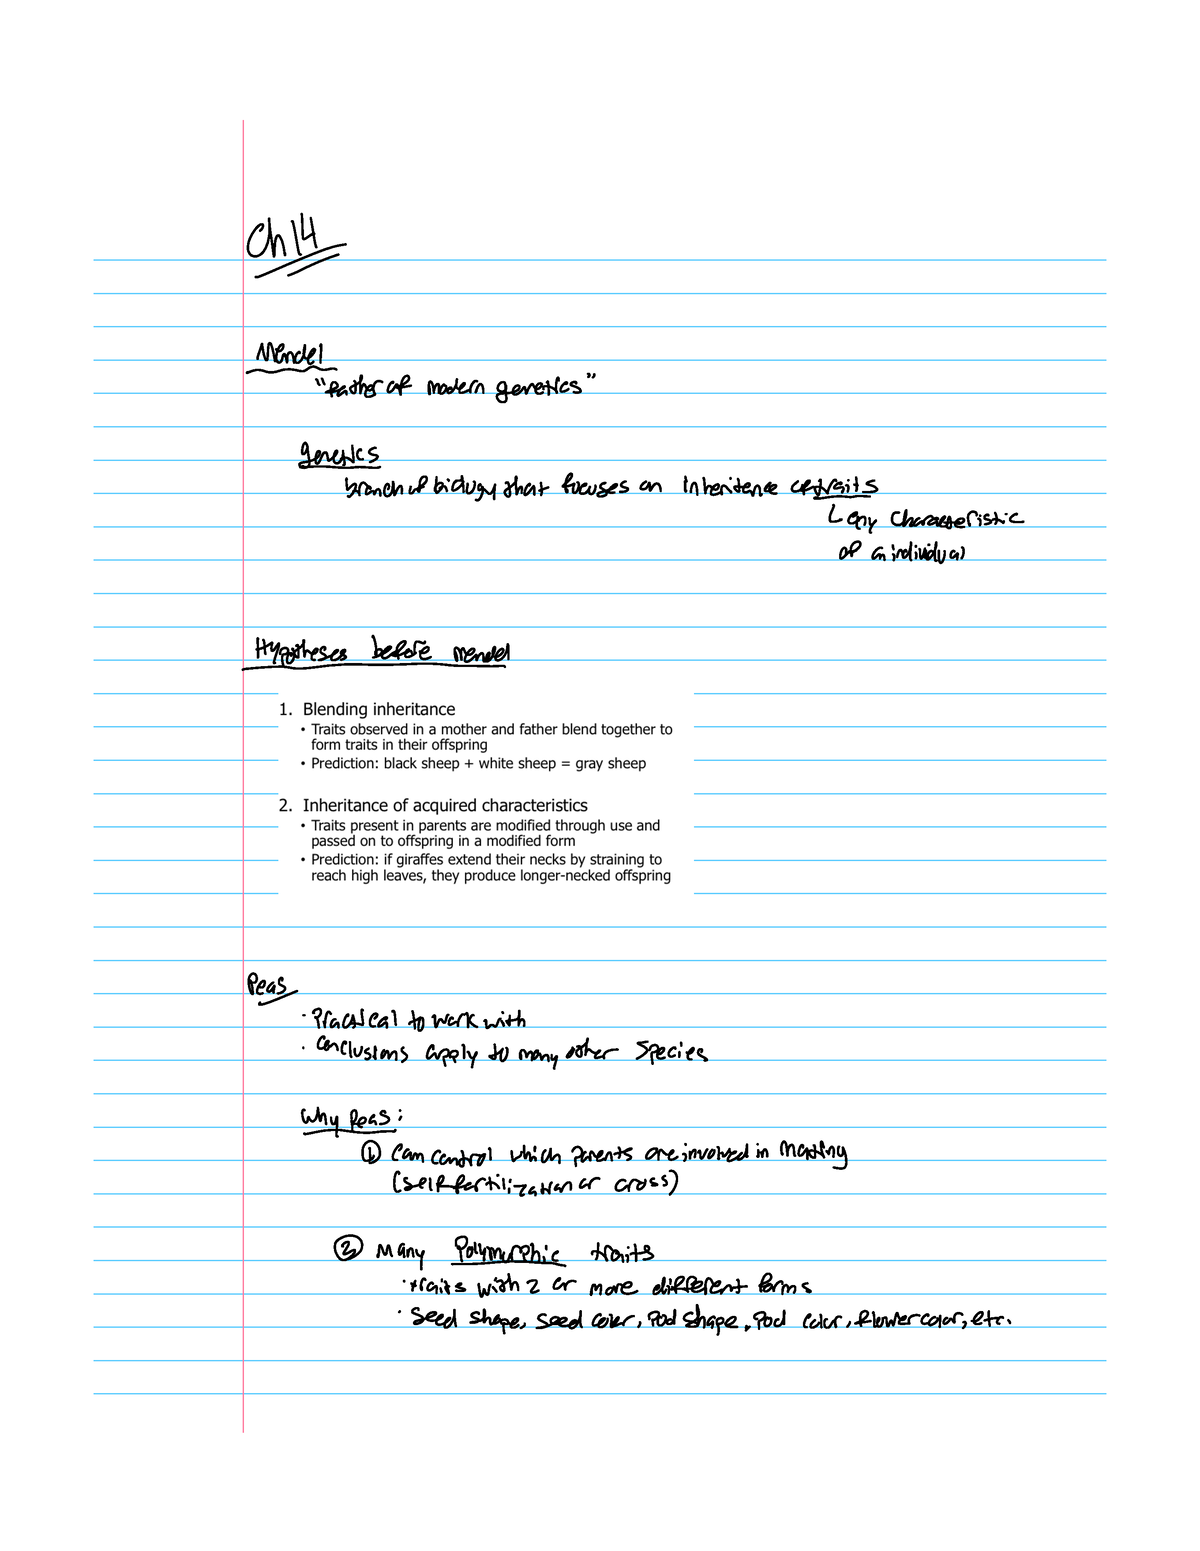 Ch 14
Mendel
"father of modern genetics"
genetics
branch of biology that focuses on inheritence of traits
any characteristic
of an individual
Hypotheses before mendel
1. Blending inheritance
• Traits observed in a mother and father blend together to
form traits in their offspring
• Prediction: black sheep + white sheep = gray sheep
2. Inheritance of acquired characteristics
• Traits present in parents are modified through use and
passed on to offspring in a modified form
• Prediction: if giraffes extend their necks by straining to
reach high leaves, they produce longer-necked offspring
Peas
· Practical to work with
· Conclusions apply to many other species
Why Peas:
① Can control which parents are involved in mating
(self fertilization or cross)
② Many Polymorphic traits
· traits with 2 or more different forms
· Seed shape, seed color, Pod shape, Pod color, flower color, etc.